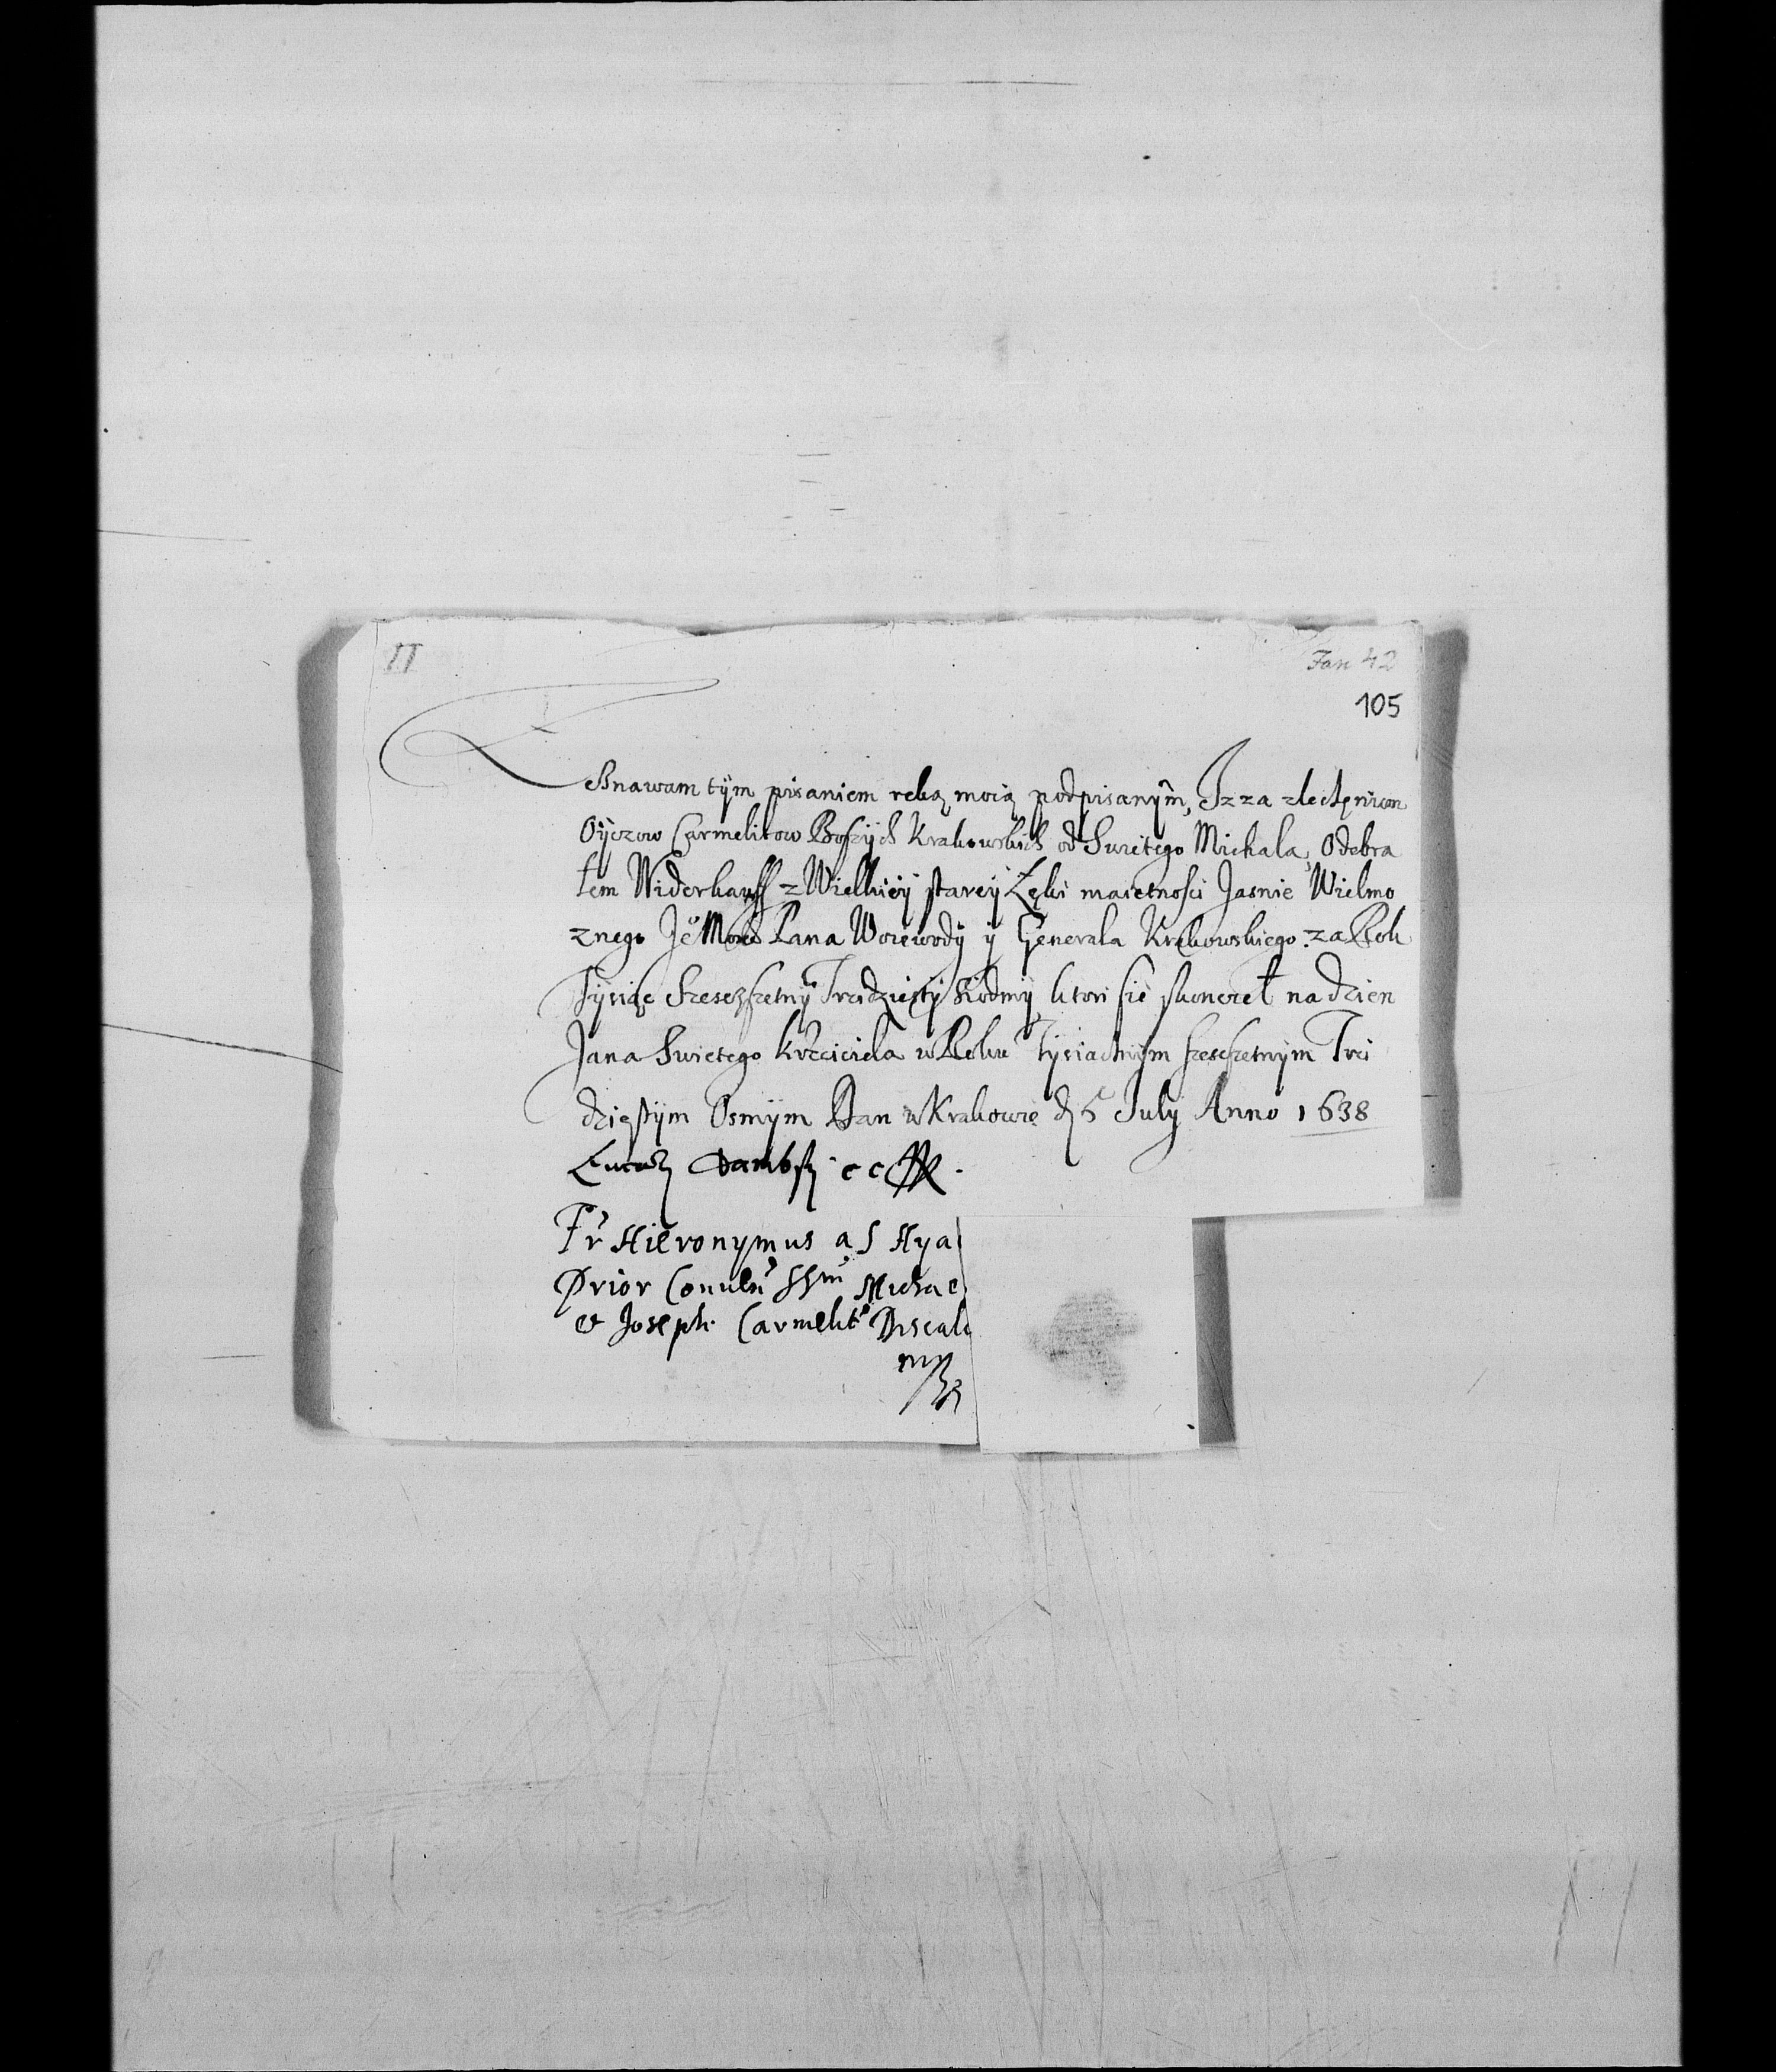 II
Fan 42
105
Zeznawam tÿm pisaniem reką moią podpisanÿm, Iz za zleczeniem
Oÿczow Carmelitow Bossÿch Krakowskich od Swietego Michala, Odebra
łem Widerkauff z Wielkieÿ starcÿ Łąki maietnosci Jasnie Wielmo
znego Je Mosci Pana Woiewodÿ ÿ Generala Krakowskiego. za Rok
Tÿsiąc Szescszetnÿ Trzdziestÿ Siodmÿ, ktori sie skonczeł na dzien
Jana Swietego Krzciciela w Roku Tÿsiacnÿm szescsetnÿm Trzi
dziestÿm Osmÿm Dan w Krakowie d 5 Julÿ Anno 1638
Lucasz Dambsky
Fr Hieronymus a S Hya
Prior Conuen SSm Michae
et Joseph. Carmelit Discalc
mp